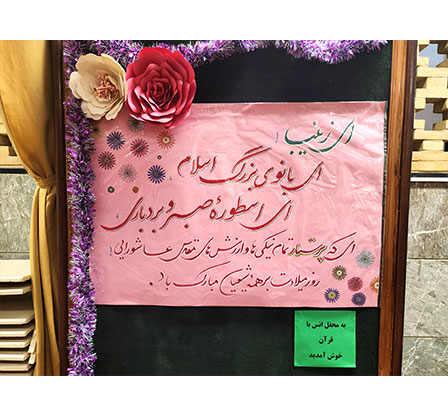 ای زینب!
ای بانوی بزرگ اسلام
ای اسطورهٔ صبر و بردباری
ای که پرستار تمام نیکی‌ها و ارزش‌های متعالی عاشورایی!
روز میلادت بر همه شیعیان مبارک باد.
به محفل انس با
قرآن
خوش آمدید